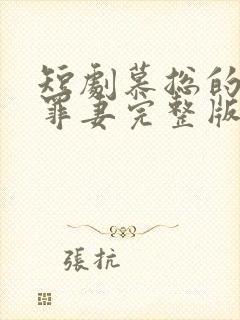 短劇慕總的
罪妻完整版
張抗